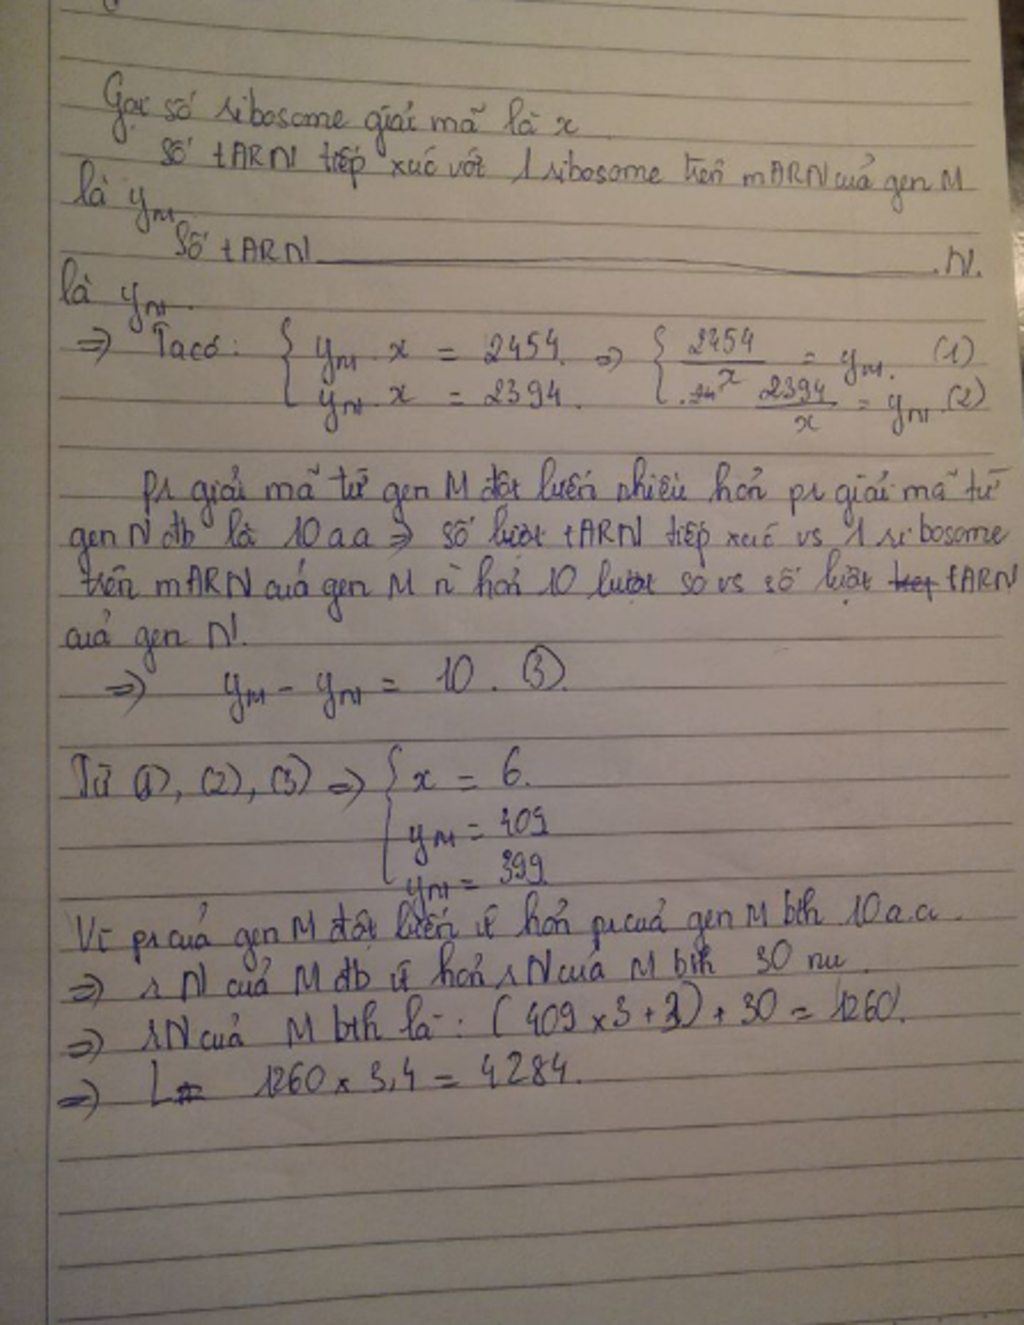 Gọi số ribosome giải mã là x
số tARN tiếp xúc với 1 ribosome trên mARN của gen M
là yM
Số tARN ____________ N.
là yN.
=> Ta có: { yM . x = 2454 => { 2454/x = yM. (1)
yN . x = 2394. 2394/x = yN (2)
Pr giải mã từ gen M đột biến nhiều hơn pr giải mã từ
gen N đb là 10 aa => số lượt tARN tiếp xúc vs 1 ribosome
trên mARN của gen M n` hơn 10 lượt so vs số lượt tARN
của gen N.
=> yM - yN = 10. (3).
Từ (1), (2), (3) => { x = 6.
yM = 409
yN = 399
Vì pr của gen M đột biến ít hơn pr của gen M bth 10 a.a.
=> rN của M đb ít hơn rN của M bth 30 nu.
=> rN của M bth là: (409 x 3 + 3) + 30 = 1260.
=> L = 1260 x 3,4 = 4284.